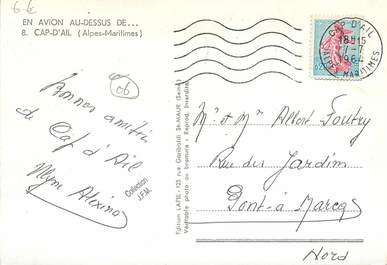 6 €
EN AVION AU-DESSUS DE...
8. CAP-D'AIL (Alpes-Maritimes)
CAP-D'AIL
18H15
7-7
1964
ALPES MARITIMES
06
Bonnes amitiés
de Cap d'Ail
Collection
J.F.M.
Edition LAPIE - 123 rue Garibaldi St-MAUR (Seine)
Véritable photo au bromure - Reprod. Interdite
Mr et Mme Albert
Rue des Jardins
Pont-à-Marcq
Nord